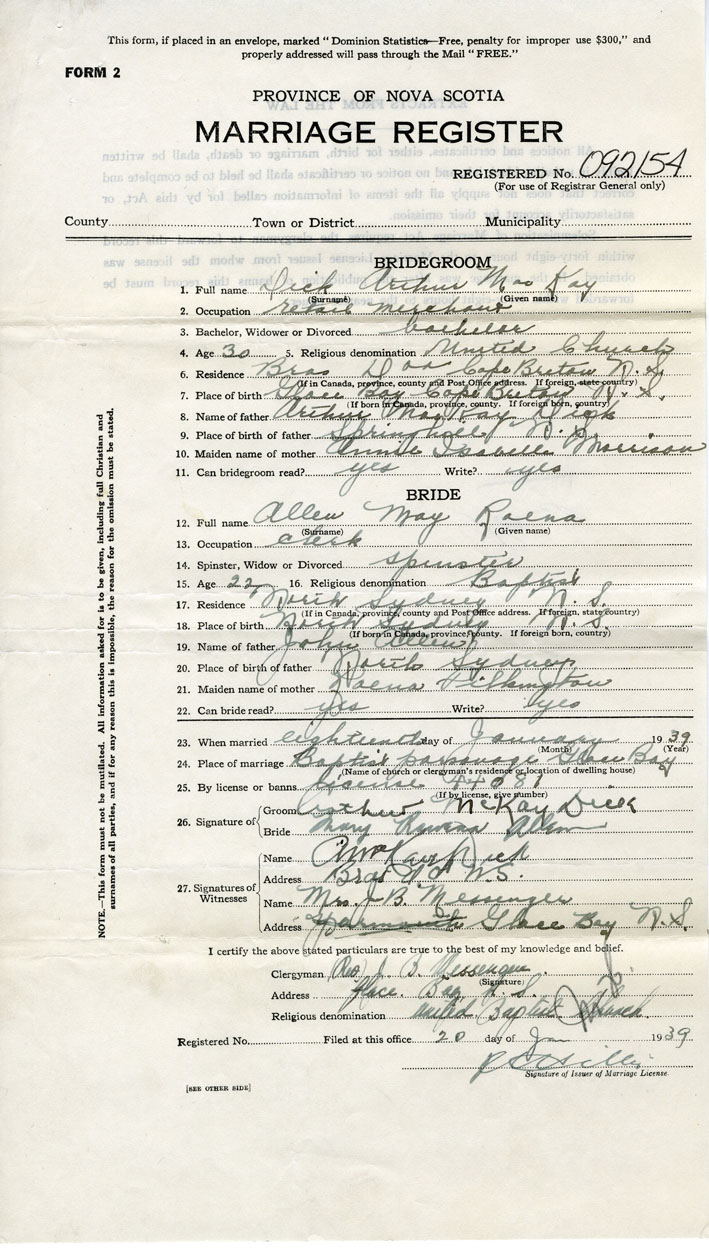 This form, if placed in an envelope, marked " Dominion Statistics—Free, penalty for improper use $300," and
properly addressed will pass through the Mail " FREE."
FORM 2
PROVINCE OF NOVA SCOTIA
MARRIAGE REGISTER
REGISTERED No. 092154
(For use of Registrar General only)
County Town or District Municipality
BRIDEGROOM
1. Full name Dick Arthur MacKay
(Surname) (Given name)
2. Occupation retail merchant
3. Bachelor, Widower or Divorced bachelor
4. Age 30 5. Religious denomination United Church
6. Residence Bras D'or Cape Breton N. S.
(If in Canada, province, county and Post Office address. If foreign, state country)
7. Place of birth Glace Bay Cape Breton N. S.
(If born in Canada, province, county. If foreign born, country)
8. Name of father Arthur MacKay Dick
9. Place of birth of father Springhill N. S.
10. Maiden name of mother Annie Isabelle Morrison
11. Can bridegroom read? yes Write? yes
BRIDE
12. Full name Allen May Roena
(Surname) (Given name)
13. Occupation clerk
14. Spinster, Widow or Divorced spinster
15. Age 22 16. Religious denomination Baptist
17. Residence North Sydney N. S.
(If in Canada, province, county and Post Office address. If foreign, state country)
18. Place of birth North Sydney N. S.
(If born in Canada, province, county. If foreign born, country)
19. Name of father John Allen
20. Place of birth of father North Sydney
21. Maiden name of mother Roena Pilkington
22. Can bride read? yes Write? yes
23. When married eighteenth day of January 1939
(Month) (Year)
24. Place of marriage Baptist parsonage Glace Bay
(Name of church or clergyman's residence or location of dwelling house)
25. By license or banns license
(If by license, give number)
26. Signature of Groom Arthur McKay Dick
Bride Mary Rowena Allen
27. Signatures of Witnesses
Name A McKay Dick
Address Bras D'or N.S.
Name Mrs. J. B. Messenger
Address Glace Bay N. S.
I certify the above stated particulars are true to the best of my knowledge and belief.
Clergyman Rev. J. B. Messenger
(Signature)
Address Glace Bay N. S.
Religious denomination United Baptist Church
Registered No. Filed at this office 20 day of Jan 1939
Signature of Issuer of Marriage License.
[SEE OTHER SIDE]
NOTE.—This form must not be mutilated. All information asked for is to be given, including full Christian and
surnames of all parties, and if for any reason this is impossible, the reason for the omission must be stated.